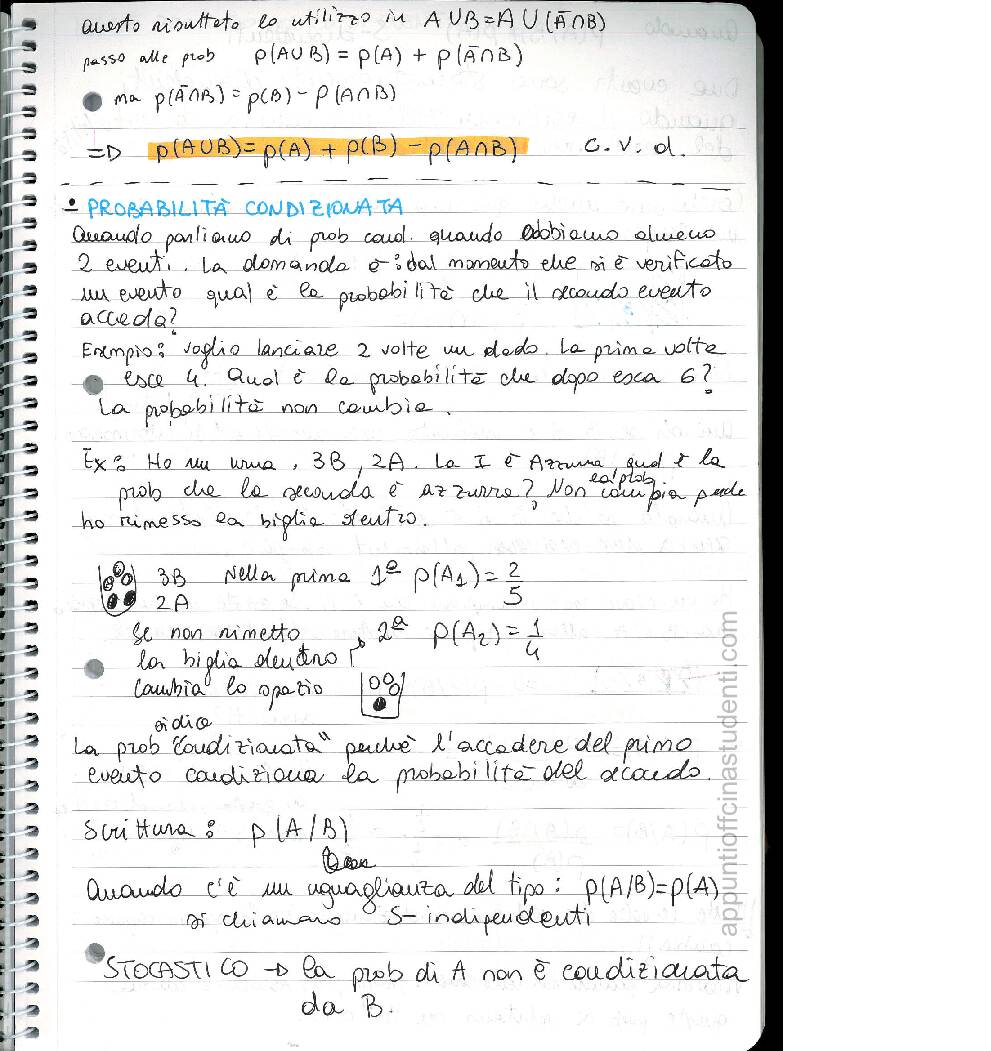 Questo risultato lo utilizzo in A∪B=A∪(Ā∩B)
passo alle prob p(A∪B) = p(A) + p(Ā∩B)
ma p(Ā∩B)=p(B)-p(A∩B)
=D p(A∪B)=p(A)+p(B)-p(A∩B) C.V.d.
• PROBABILITÀ CONDIZIONATA
Quando parliamo di prob cond. quando abbiamo almeno
2 eventi. La domanda è: dal momento che si è verificato
un evento qual è la probabilità che il secondo evento
acceda?
Esempio: voglio lanciare 2 volte un dado. La prima volta
esce 4. Qual è la probabilità che dopo esca 6?
La probabilità non cambia.
Ex: Ho un urna, 3B, 2A. La I è Azzurra, qual è la
prob che la seconda è azzurra? Non cambia la prob perche
ho rimesso la biglia dentro.
3B Nella prima 1ª p(A1)=2/5
2A
Se non rimetto 2ª p(A2)=1/4
la biglia dentro
Cambia lo spazio
si dice
La prob "condizionata" perchè l'accadere del primo
evento condiziona la probabilità del secondo.
Scrittura: p(A/B)
Quando c'è un uguaglianza del tipo: p(A/B)=p(A)
si chiamano S-indipendenti
STOCASTICO → la prob di A non è condizionata
da B.
appuntioffcinastudenti.com